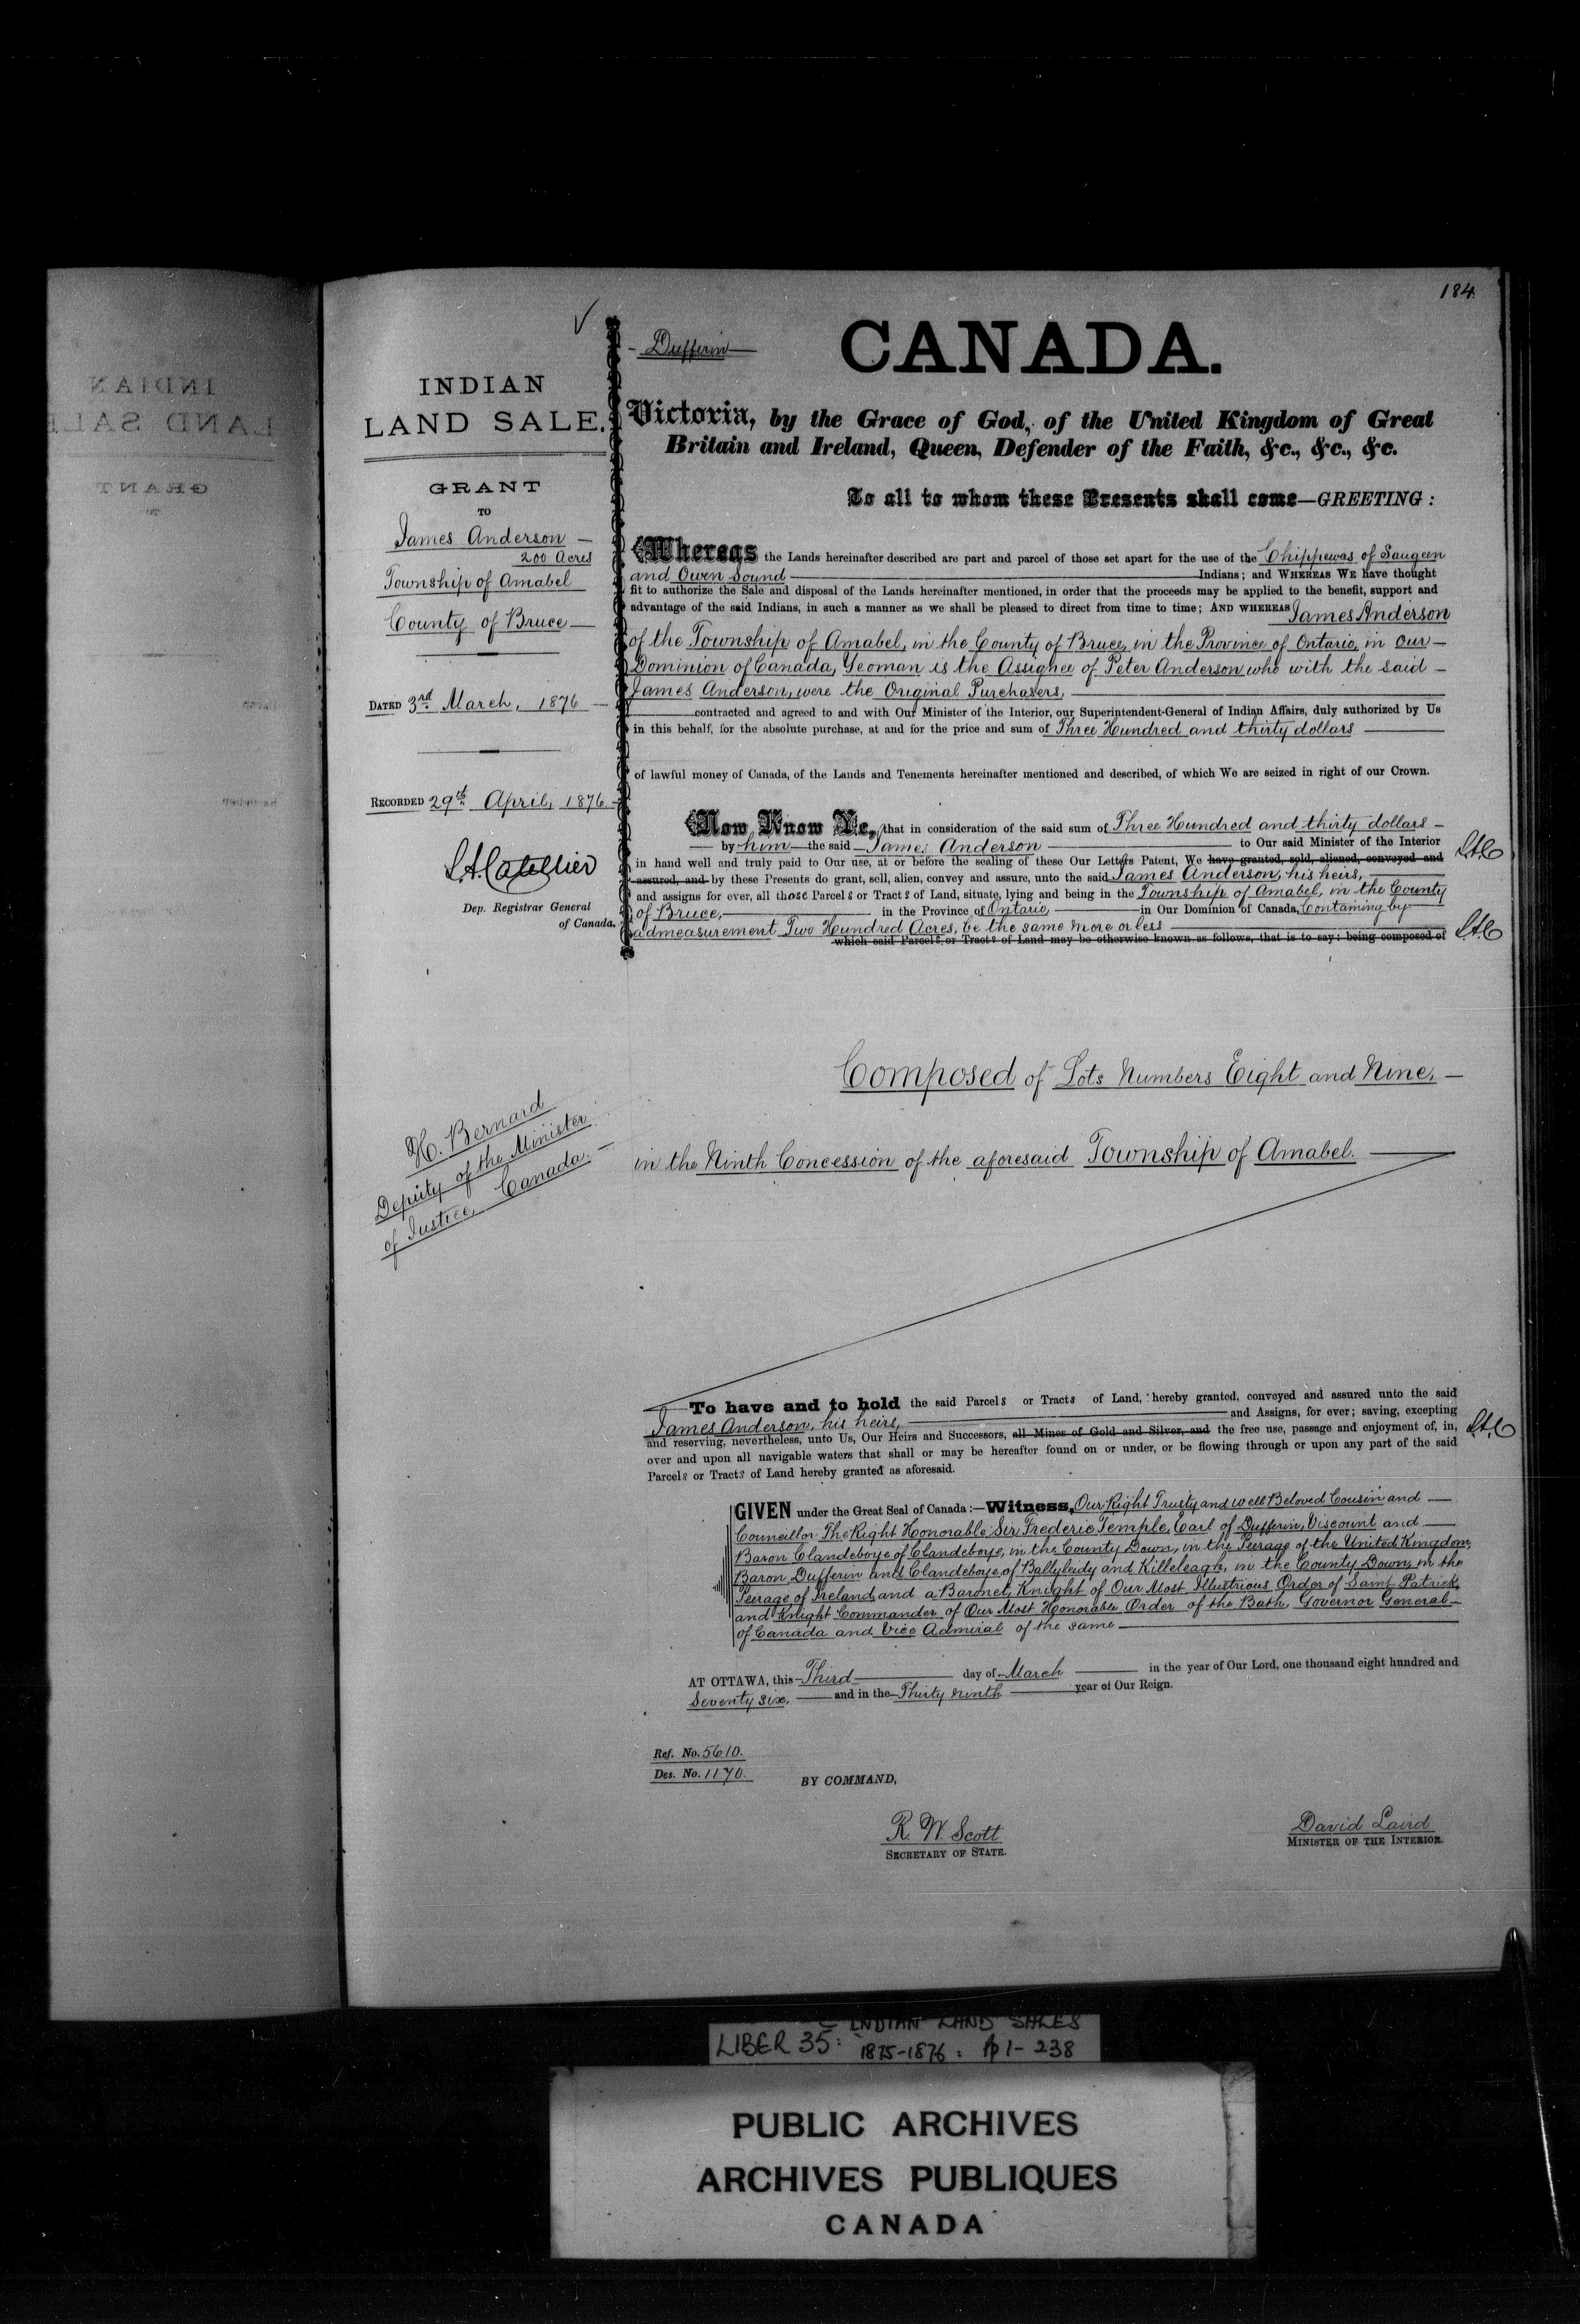 184
INDIAN
LAND SALE.
GRANT
TO
James Anderson —
200 Acres
Township of Amabel
County of Bruce —
DATED 3rd March, 1876 —
RECORDED 29th April, 1876.
Dep. Registrar General
of Canada.
H. Bernard
Deputy of the Minister
of Justice, Canada. —
- Dufferin —
CANADA.
Victoria, by the Grace of God, of the United Kingdom of Great
Britain and Ireland, Queen, Defender of the Faith, &c., &c., &c.
To all to whom these Presents shall come—GREETING:
Whereas the Lands hereinafter described are part and parcel of those set apart for the use of the Chippewas of Saugeen
and Owen Sound — Indians; and WHEREAS WE have thought
fit to authorize the Sale and disposal of the Lands hereinafter mentioned, in order that the proceeds may be applied to the benefit, support and
advantage of the said Indians, in such a manner as we shall be pleased to direct from time to time; AND WHEREAS James Anderson
of the Township of Amabel, in the County of Bruce, in the Province of Ontario, in our —
Dominion of Canada, Yeoman is the Assignee of Peter Anderson who with the said —
James Anderson, were the Original Purchasers, —
contracted and agreed to and with Our Minister of the Interior, our Superintendent-General of Indian Affairs, duly authorized by Us
in this behalf, for the absolute purchase, at and for the price and sum of Three Hundred and thirty dollars —
of lawful money of Canada, of the Lands and Tenements hereinafter mentioned and described, of which We are seized in right of our Crown.
Now Know Ye, that in consideration of the said sum of Three Hundred and thirty dollars —
— by him — the said — James Anderson — to Our said Minister of the Interior
in hand well and truly paid to Our use, at or before the sealing of these Our Letters Patent, We have granted, sold, aliened, conveyed and
assured, and by these Presents do grant, sell, alien, convey and assure, unto the said James Anderson, his heirs, —
and assigns for ever, all those Parcels or Tracts of Land, situate, lying and being in the Township of Amabel, in the County
of Bruce, — in the Province of Ontario, — in Our Dominion of Canada, Containing by
admeasurement Two Hundred Acres, be the same more or less —
which said Parcels or Tracts of Land may be otherwise known as follows, that is to say: being composed of
Composed of Lots Numbers Eight and Nine, —
in the Ninth Concession of the aforesaid Township of Amabel. —
To have and to hold the said Parcels or Tracts of Land, hereby granted, conveyed and assured unto the said
James Anderson, his heirs, — and Assigns, for ever; saving, excepting
and reserving, nevertheless, unto Us, Our Heirs and Successors, all Mines of Gold and Silver, and the free use, passage and enjoyment of, in,
over and upon all navigable waters that shall or may be hereafter found on or under, or be flowing through or upon any part of the said
Parcels or Tracts of Land hereby granted as aforesaid.
GIVEN under the Great Seal of Canada:—Witness, Our Right Trusty and well Beloved Cousin and —
Councillor The Right Honorable Sir Frederic Temple, Earl of Dufferin, Viscount and —
Baron Clandeboye of Clandeboye, in the County Down, in the Peerage of the United Kingdom,
Baron Dufferin and Clandeboye of Ballyleidy and Killeleagh, in the County Down, in the
Peerage of Ireland and a Baronet, Knight of Our Most Illustrious Order of Saint Patrick,
and Knight Commander of Our Most Honorable Order of the Bath, Governor General —
of Canada and Vice Admiral of the same —
AT OTTAWA, this — Third — day of — March — in the year of Our Lord, one thousand eight hundred and
Seventy six, — and in the — Thirty ninth — year of Our Reign.
Ref. No. 5610.
Des. No. 1170.
BY COMMAND,
R. W. Scott
SECRETARY OF STATE.
David Laird
MINISTER OF THE INTERIOR.
INDIAN LAND SALES
LIBER 35: 1875-1876: pp 1-238
PUBLIC ARCHIVES
ARCHIVES PUBLIQUES
CANADA